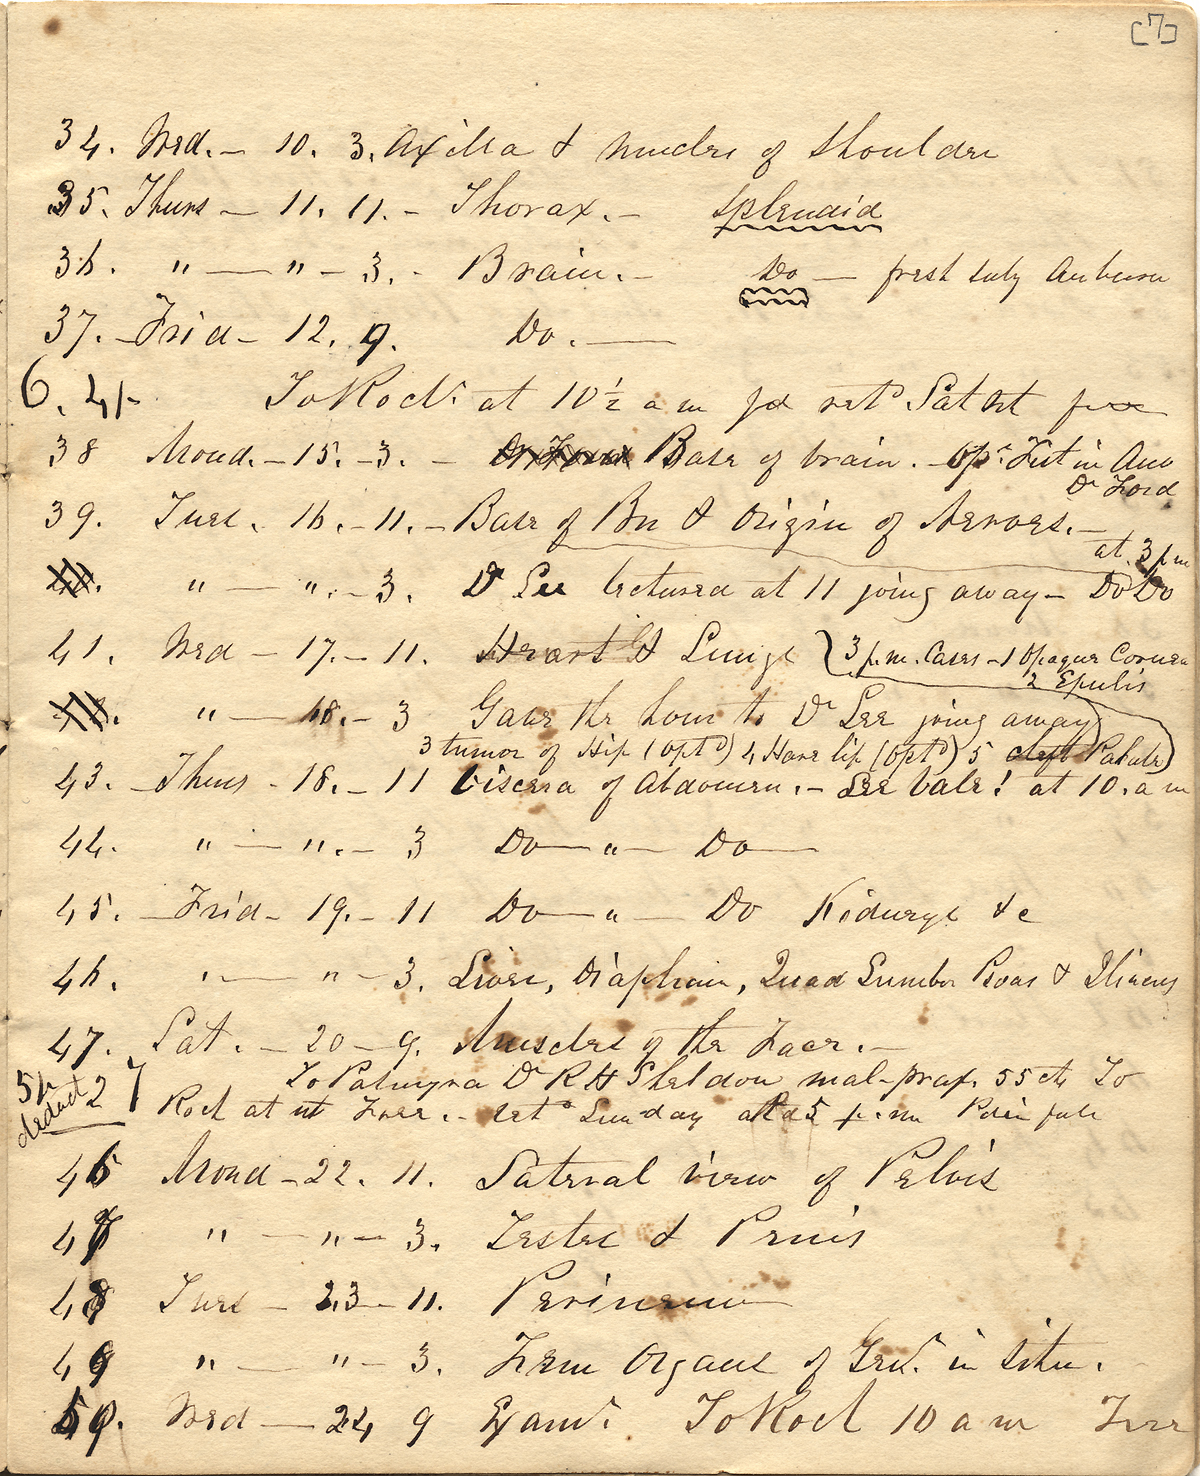 [7]
34. Wed. — 10. 3. Axilla & muscles of shoulder
35. Thurs — 11. 11. — Thorax. — splendid
36. " — " — 3. - Brain. — Do — fresh subj Auburn
37. — Frid — 12. 9. Do. —
6. 4/- To Roch. at 10½ a m fd ret^d Sat at free
38 Mond. — 15. — 3. — Base of brain. — Op^r. Inst in Aub
Dr Ford
39. Tues. 16. — 11. — Base of Bn & Origin of Nerves. —
at 3 p m
40. " — ". — 3. Dr Lee lectured at 11 going away — Do Do
41. Wed — 17. — 11. Heart & Lungs { 3 p. m. Cases — 1 Opaque Cornea
2 Epulis
" — 18. — 3 Gave the hour to Dr Lee going away
3 tumor of Hip (opt^d) 4 Hare lip (opt^d) 5 cleft Palate)
43. — Thurs - 18. — 11 Viscera of Abdomen. — Lee vale! at 10. a m
44. " — ". — 3 Do — " — Do —
45. — Frid — 19. — 11 Do — " — Do Kidneys &c
46. " — " — 3. Liver, Diaphrm, Quad Lumbor Psoas & Iliacus
47. Sat. — 20 — 9. Muscles of the Face. —
To Palmyra Dr R H Sheldon mal-prax. 55 cts To
deduct 2
Roch at nt Free. — ret^d Sunday at 5 p. m
46 Mond — 22. 11. Lateral view of Pelvis
47 " — " — 3. Testes & Penis
48 Tues — 23 — 11. Perineum
49 " — " — 3. Fem Organs of Gen^r. in situ.
50. Wed — 24 9 Exam^n. To Roch 10 a m Free